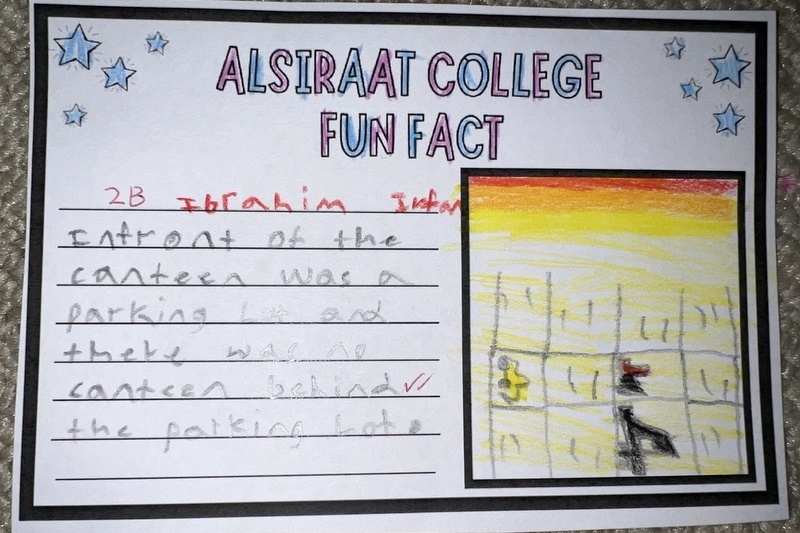 ALSIRAAT COLLEGE
FUN FACT
2B Ibrahim Irfan
Infront of the
canteen was a
parking Lot and
there was no
canteen behind
the parking Lot.